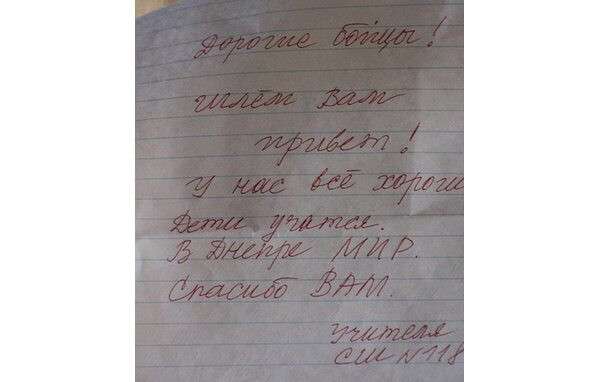 Дорогие бойцы!
Шлём Вам
привет!
У нас всё хорош
Дети учатся.
В Днепре МИР.
Спасибо ВАМ.
Учителя
СШ N118